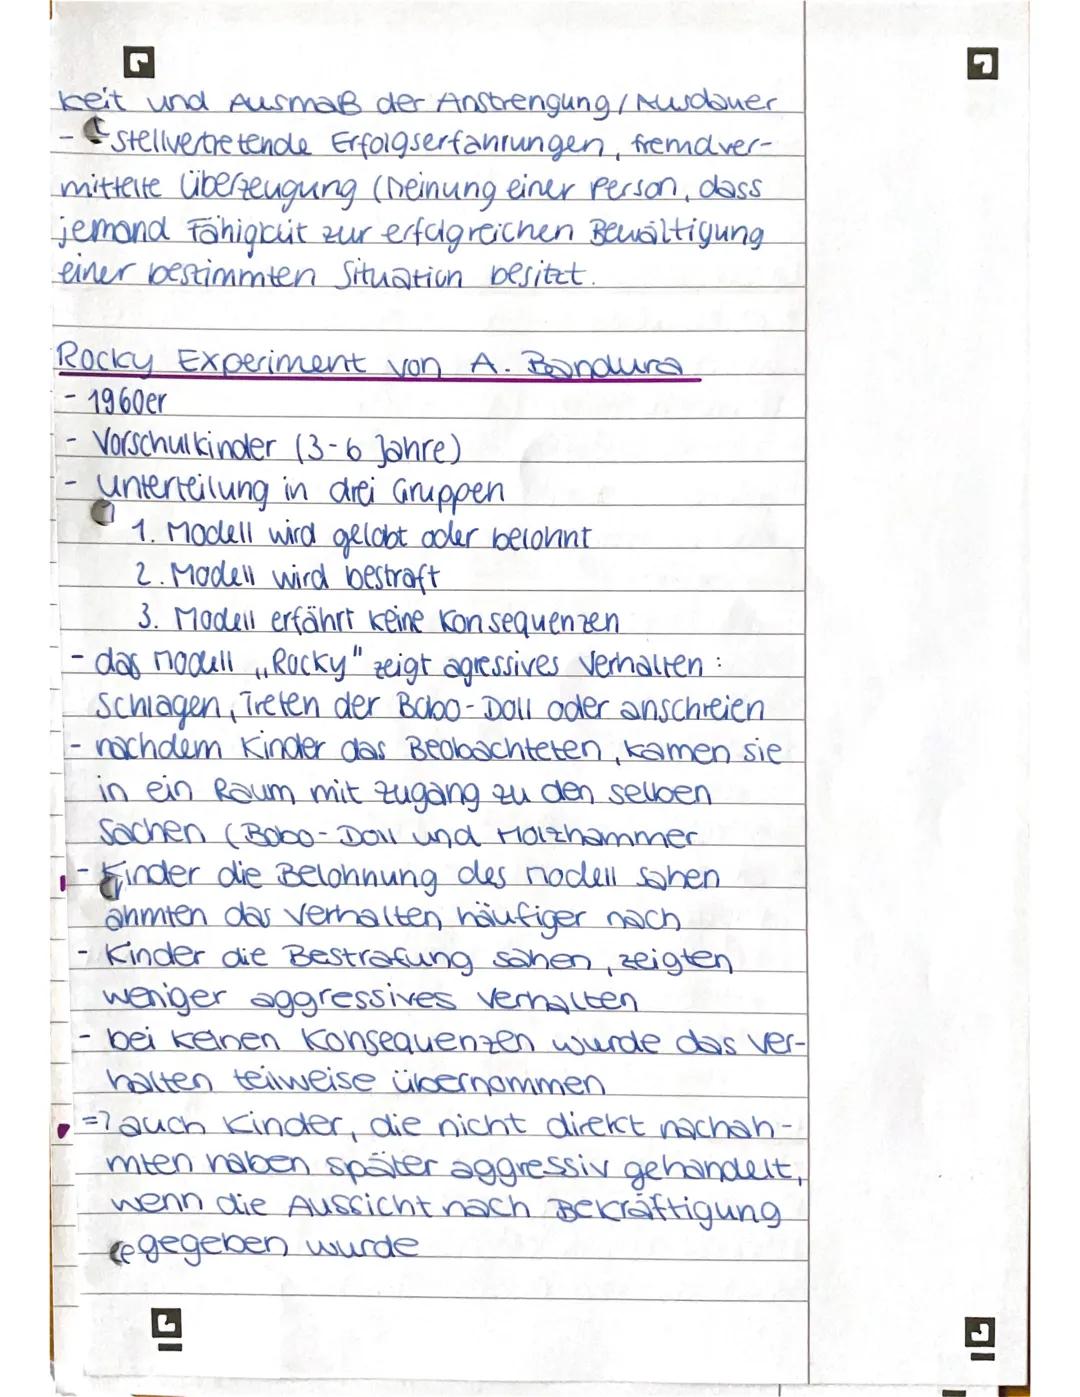 keit und Ausmaß der Anstrengung/Ausdauer
- stellvertretende Erfolgserfahrungen, fremdver-
mittelte Überzeugung (Meinung einer Person, dass
jemand Fähigkeit zur erfolgreichen Bewältigung
einer bestimmten Situation besitzt.
Rocky Experiment von A. Bandura
- 1960er
- Vorschulkinder (3-6 Jahre)
- Unterteilung in drei Gruppen
1. Modell wird gelobt oder belohnt
2. Modell wird bestraft
3. Modell erfährt keine Konsequenzen
- das Modell „Rocky" zeigt agressives Verhalten:
Schlagen, Treten der Bobo-Doll oder anschreien
- nachdem Kinder das Beobachteten, kamen sie
in ein Raum mit zugang zu den selben
Sachen (Bobo-Doll und Holzhammer
- Kinder die Belohnung des Modell sahen
ahmten das Verhalten häufiger nach
- Kinder die Bestrafung sahen, zeigten
weniger aggressives Verhalten
- bei keinen Konsequenzen wurde das Ver-
halten teilweise übernommen
=> auch Kinder, die nicht direkt nachah-
mten haben später aggressiv gehandelt,
wenn die Aussicht nach Bekräftigung
gegeben wurde